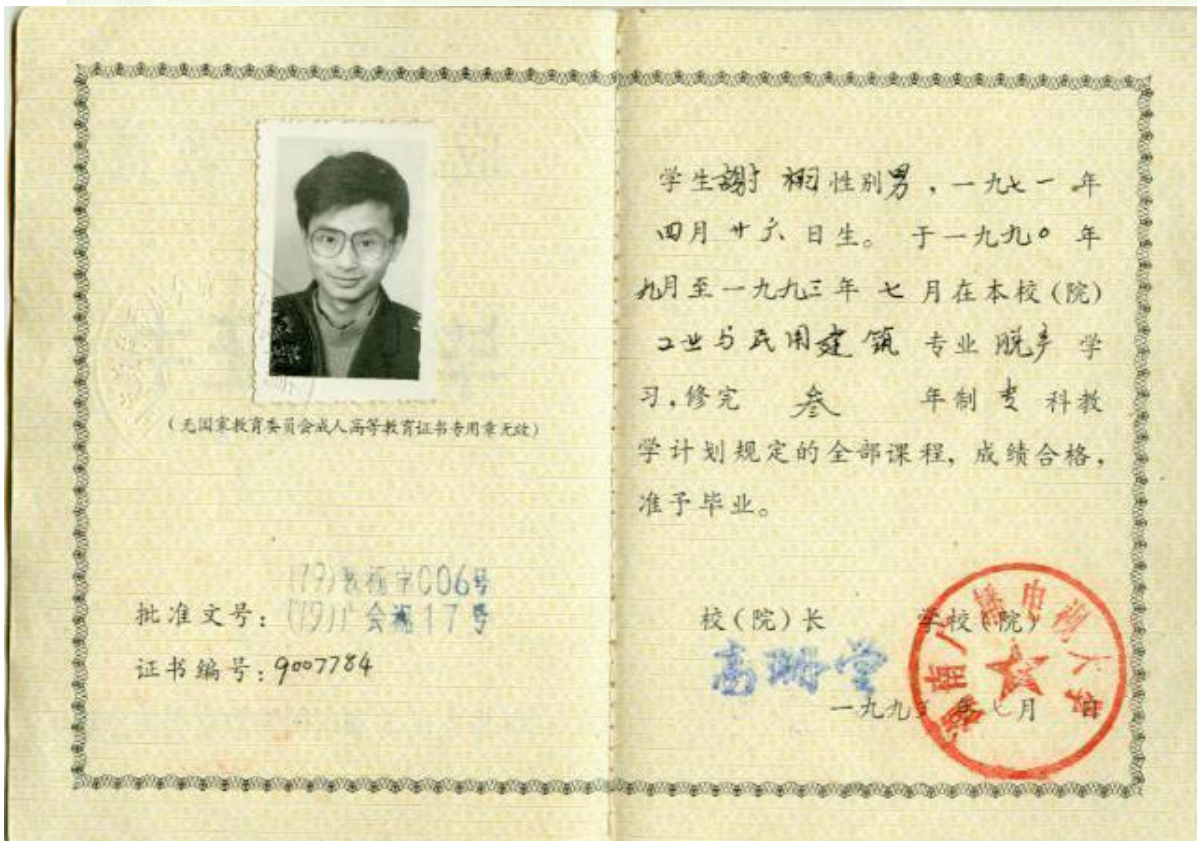 (无国家教育委员会成人高等教育证书专用章无效)
(79)教视字006号
批准文号: (79)广会湘17号
证书编号: 9007784
学生謝栩性别男，一九七一年
四月廿六日生。于一九九〇年
九月至一九九三年七月在本校(院)
工业与民用建筑专业脱产学
习,修完叁年制专科教
学计划规定的全部课程,成绩合格,
准予毕业。
校(院)长 学校(院)
高
一九九三年七月 日
湖南广播电视大学